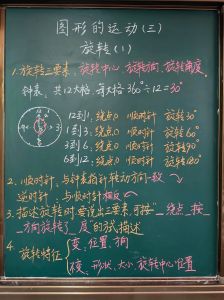 图形的运动(三)
旋转(1)
1.旋转三要素:旋转中心、旋转方向、旋转角度
钟表:共12大格,每大格360°÷12=30°
12到1:绕点O 顺时针 旋转30°
1到3:绕点O 顺时针 旋转60°
3到6:绕点O 顺时针 旋转90°
6到12:绕点O 顺时针 旋转180°
2.顺时针:与钟表指针转动方向一致
逆时针:与顺时针相反
3.描述旋转时要说出三要素,可按“ 绕点 按
方向旋转了 度”的方式描述
4.旋转特征
变:位置、方向
不变:形状、大小、旋转中心位置